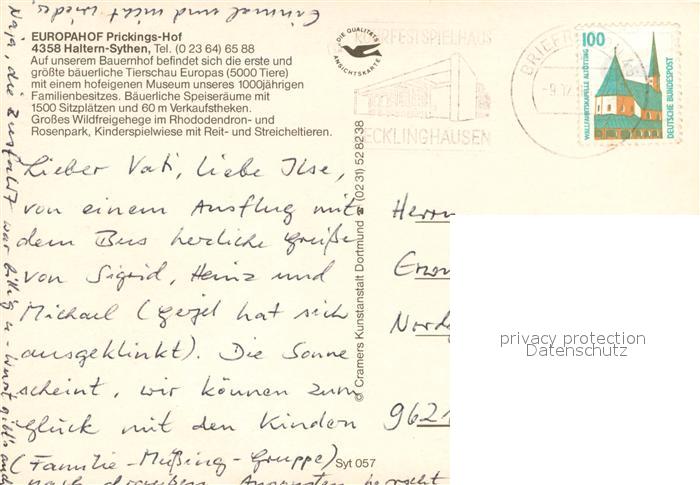 einmal und nicht wieder.
EUROPAHOF Prickings-Hof
4358 Haltern-Sythen, Tel. (0 23 64) 65 88
Auf unserem Bauernhof befindet sich die erste und
größte bäuerliche Tierschau Europas (5000 Tiere)
mit einem hofeigenen Museum unseres 1000jährigen
Familienbesitzes. Bäuerliche Speiseräume mit
1500 Sitzplätzen und 60 m Verkaufstheken.
Großes Wildfreigehege im Rhododendron- und
Rosenpark, Kinderspielwiese mit Reit- und Streicheltieren.
Lieber Vati, liebe Ilse,
von einem Ausflug mit
dem Bus herzliche Grüße
von Sigrid, Heinz und
Michael (
hat sich
ausgeklinkt). Die Sonne
scheint, wir können zum
Glück mit den Kindern
(Familie-Müßing-Gruppe)
nach draußen. Ansonsten herrscht
Naja, die Zufahrt war billig u. Wurst gibt's auch
Syt 057
© Cramers Kunstanstalt Dortmund ☎ (02 31) 52 82 38
DIE QUALITÄTS
ANSICHTSKARTE
RUHRFESTSPIELHAUS
RECKLINGHAUSEN
BRIEFZ
-9.12
100
WALLFAHRTSKAPELLE ALTÖTTING
DEUTSCHE BUNDESPOST
Herrn
Nord
9621
privacy protection
Datenschutz